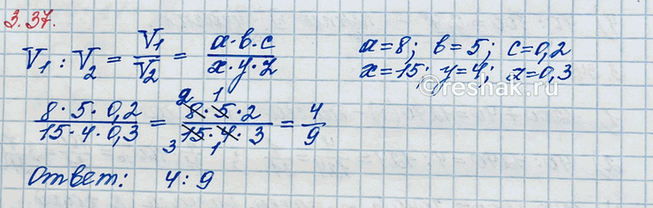 3.37.
V₁ : V₂ = V₁/V₂ = a·b·c / x·y·z a=8; b=5; c=0,2
x=15; y=4; z=0,3
8·5·0,2 / 15·4·0,3 = 8·5·2 / 15·4·3 = 4/9
2 1
3 1
Ответ: 4:9
Reshak.ru